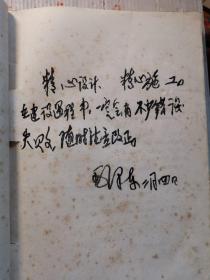 精心设计 精心施工
在建设过程中，一定会有不少错误
失败，随时注意改正。
毛泽东 二月四日